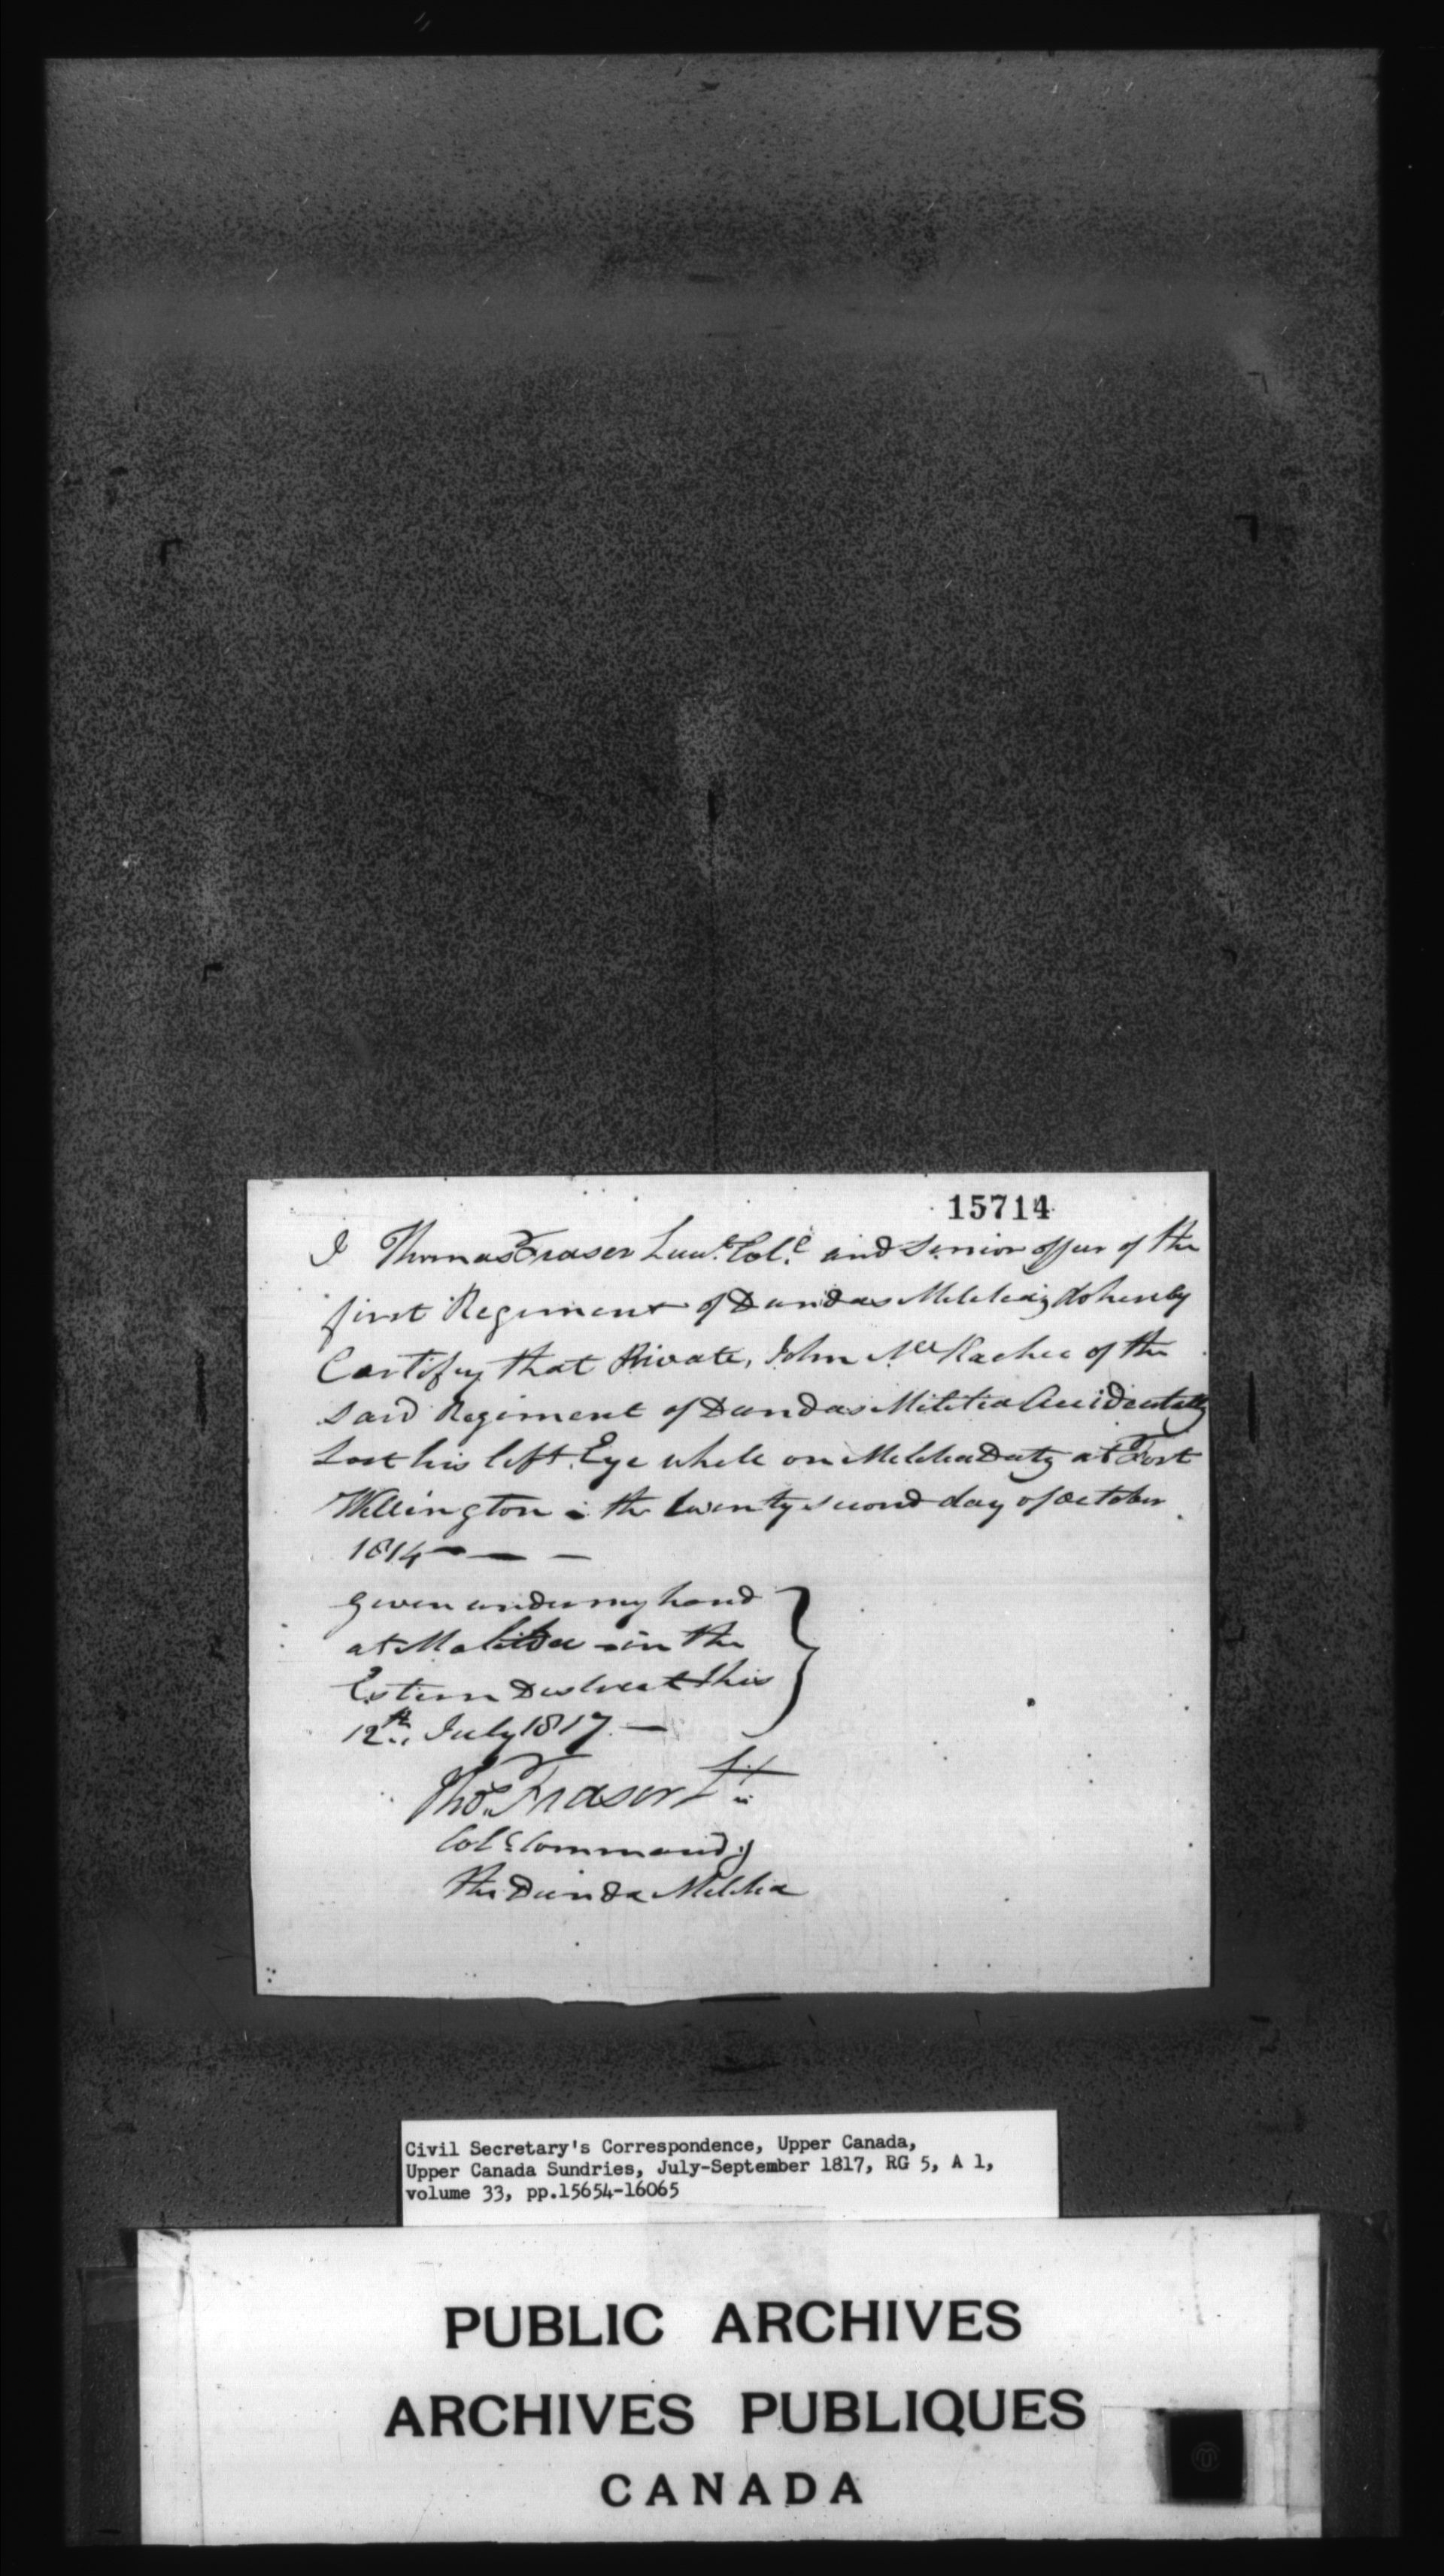 15714
I Thomas Fraser Lieut. Col. and Senior officer of the
first Regiment of Dundas Militia, do hereby
Certify that Private, John Mc of the
said Regiment of Dundas Militia Accidentally
Lost his left Eye while on Militia Duty at Fort
Wellington the twenty second day of October
1814 — — —
given under my hand
at Matilda in the
Estern District this
12th July 1817. —
Thos. Fraser Lt
Col. Command.g
the Dunda Militia
Civil Secretary's Correspondence, Upper Canada,
Upper Canada Sundries, July-September 1817, RG 5, A 1,
volume 33, pp.15654-16065
PUBLIC ARCHIVES
ARCHIVES PUBLIQUES
CANADA